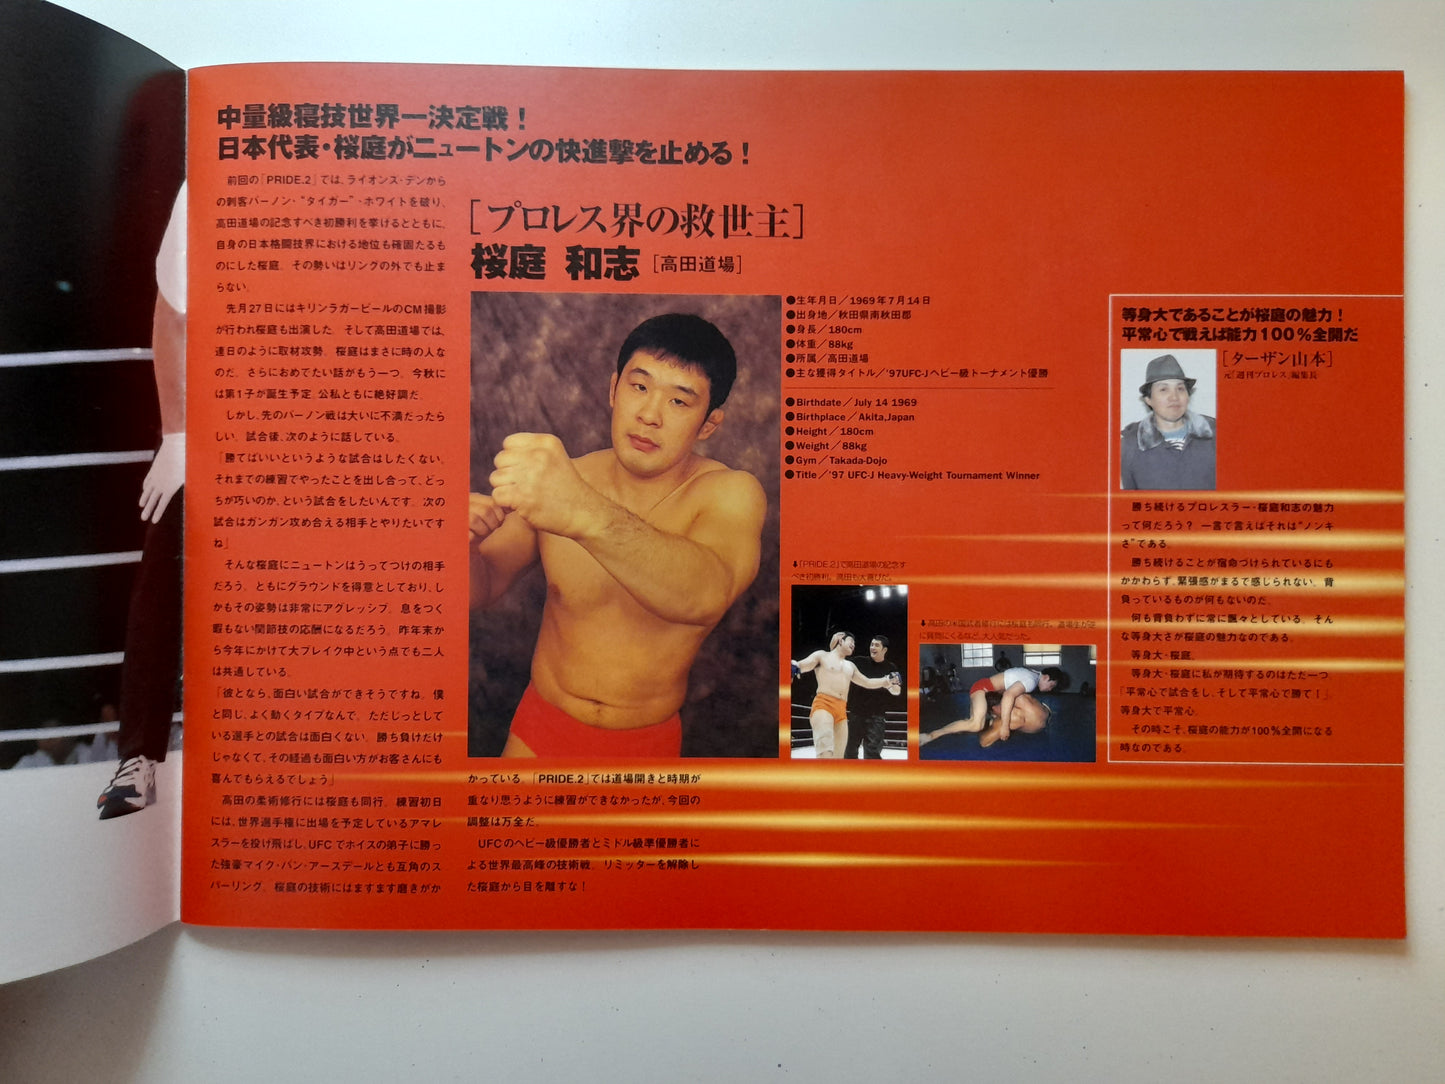 中量級寝技世界一決定戦！
日本代表・桜庭がニュートンの快進撃を止める！
前回の「PRIDE.2」では、ライオンズ・デンから
の刺客バーノン・“タイガー”・ホワイトを破り、
高田道場の記念すべき初勝利を挙げるとともに、
自身の日本格闘技界における地位も確固たるも
のにした桜庭。その勢いはリングの外でも止ま
らない。
先月27日にはキリンラガービールのCM撮影
が行われ桜庭も出演した。そして高田道場では、
連日のように取材攻勢。桜庭はまさに時の人な
のだ。さらにおめでたい話がもう一つ。今秋に
は第1子が誕生予定。公私ともに絶好調だ。
しかし、先のバーノン戦は大いに不満だったら
しい。試合後、次のように話している。
「勝てばいいというような試合はしたくない。
それまでの練習でやったことを出し合って、どっ
ちが巧いのか、という試合をしたいんです。次の
試合はガンガン攻め合える相手とやりたいです
ね」
そんな桜庭にニュートンはうってつけの相手
だろう。ともにグラウンドを得意としており、し
かもその姿勢は非常にアグレッシブ。息をつく
暇もない関節技の応酬になるだろう。昨年末か
ら今年にかけて大ブレイク中という点でも二人
は共通している。
「彼となら、面白い試合ができそうですね。僕
と同じ、よく動くタイプなんで。ただじっとして
いる選手との試合は面白くない。勝ち負けだけ
じゃなくて、その経過も面白い方がお客さんにも
喜んでもらえるでしょう」
高田の柔術修行には桜庭も同行。練習初日
には、世界選手権に出場を予定しているアマレ
スラーを投げ飛ばし、UFCでホイスの弟子に勝っ
た強豪マイク・バン・アースデールとも互角のス
パーリング。桜庭の技術にはますます磨きがか
［プロレス界の救世主］
桜庭 和志［高田道場］
●生年月日／1969年7月14日
●出身地／秋田県南秋田郡
●身長／180cm
●体重／88kg
●所属／高田道場
●主な獲得タイトル／’97UFC-Jヘビー級トーナメント優勝
●Birthdate／July 14 1969
●Birthplace／Akita,Japan
●Height／180cm
●Weight／88kg
●Gym／Takada-Dojo
●Title／’97 UFC-J Heavy-Weight Tournament Winner
⬇「PRIDE.2」で高田道場の記念す
べき初勝利。高田も大喜びだ。
⬇高田の米国武者修行には桜庭も同行。道場生が逆
に質問にくるなど、大人気だった。
かっている。「PRIDE.2」では道場開きと時期が
重なり思うように練習ができなかったが、今回の
調整は万全だ。
UFCのヘビー級優勝者とミドル級準優勝者に
よる世界最高峰の技術戦。リミッターを解除し
た桜庭から目を離すな！
等身大であることが桜庭の魅力！
平常心で戦えば能力100％全開だ
［ターザン山本］
元「週刊プロレス」編集長
勝ち続けるプロレスラー・桜庭和志の魅力
って何だろう？ 一言で言えばそれは“ノンキ
さ”である。
勝ち続けることが宿命づけられているにも
かかわらず、緊張感がまるで感じられない。背
負っているものが何もないのだ。
何も背負わずに常に飄々としている。そん
な等身大さが桜庭の魅力なのである。
等身大・桜庭。
等身大・桜庭に私が期待するのはただ一つ。
「平常心で試合をし、そして平常心で勝て！」
等身大で平常心。
その時こそ、桜庭の能力が100％全開になる
時なのである。